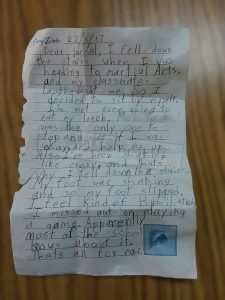 22/3/17
Dear, jornal, I fell down
the stairs, when I was
heading to Martial Arts,
and my classmates
laughed at me, so I
decided to sit by myself.
I'm not even going to
eat my lunch,
was the only one to
stop and see if I was
okay and help me up.
Also I've been shaking
like crazy and thats
why I fell down the stairs.
My foot was shaking
and so my foot slipped,
I feel kind of
I missed out on playing
a game. Apparently
most of the school
knows about it.
Thats all for now.